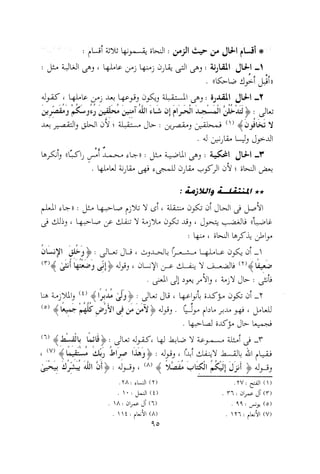 * أقسام الحال من حيث الزمن : النحاة يقسمونها ثلاثة أقسام :
١ـ الحال المقارنة : وهى التى يقارن زمنها زمن عاملها ، وهى الغالبة مثل :
«أقبل أخوك ضاحكا» .
٢ـ الحال المقدرة : وهى المستقبلة ويكون وقوعها بعد زمن عاملها ، كقوله
تعالى : ﴿ لَتَدْخُلُنَّ الْمَسْجِدَ الْحَرَامَ إِن شَاءَ اللَّهُ آمِنِينَ مُحَلِّقِينَ رُءُوسَكُمْ وَمُقَصِّرِينَ
لا تَخَافُونَ ﴾ (١) فمحلقين ومقصرين : حال مستقبلة ؛ لأن الحلق والتقصير بعد
الدخول وليسا مقارنين له .
٣ـ الحال المحكية : وهى الماضية مثل : «جاء محمد أمس راكبًا» وأنكرها
بعض النحاة ؛ لأن الركوب مقارن للمجىء فهى مقارنة لعاملها .
** المنتقلة واللازمة :
الأصل فى الحال أن تكون منتقلة ، أى لا تلازم صاحبها مثل : «جاء المعلم
غاضبًا» فالغضب يتحول ، وقد تكون ملازمة لا تنفك عن صاحبها ، وذلك فى
مواطن يذكرها النحاة ، منها :
١ـ أن يكون عاملها مشعرًا بالحدوث ، قال تعالى : ﴿ وَخُلِقَ الإِنسَانُ
ضَعِيفًا ﴾ (٢) فالضعف لا ينفك عن الإنسان ، وقوله ﴿ إِنِّي وَضَعْتُهَا أُنثَىٰ ﴾ (٣)
فأنثى : حال لازمة ، والأمر يعود إلى المعنى .
٢ـ أن تكون مؤكدة بأنواعها ، قال تعالى : ﴿ وَلَّىٰ مُدْبِرًا ﴾ (٤) والملازمة هنا
للعامل ، فهو مدبر مادام موليًا . وقوله ﴿ لآمَنَ مَن فِي الأَرْضِ كُلُّهُمْ جَمِيعًا ﴾ (٥)
فجميعا حال مؤكدة لصاحبها .
٣ـ فى أمثلة مسموعة لا ضابط لها ، كقوله تعالى : ﴿ قَائِمًا بِالْقِسْطِ ﴾ (٦)
فقيام الله بالقسط لاينفك أبدًا ، وقوله : ﴿ وَهَذَا صِرَاطُ رَبِّكَ مُسْتَقِيمًا ﴾ (٧) ،
وقوله ﴿ أَنزَلَ إِلَيْكُمُ الْكِتَابَ مُفَصَّلاً ﴾ (٨) ، وقوله : ﴿ أَنَّ اللَّهَ يُبَشِّرُكَ بِيَحْيَىٰ
(١) الفتح : ٢٧. (٢) النساء : ٢٨.
(٣) آل عمران : ٣٦. (٤) النمل : ١٠.
(٥) يونس : ٩٩. (٦) آل عمران : ١٨.
(٧) الأنعام : ١٢٦. (٨) الأنعام : ١١٤.
٩٥